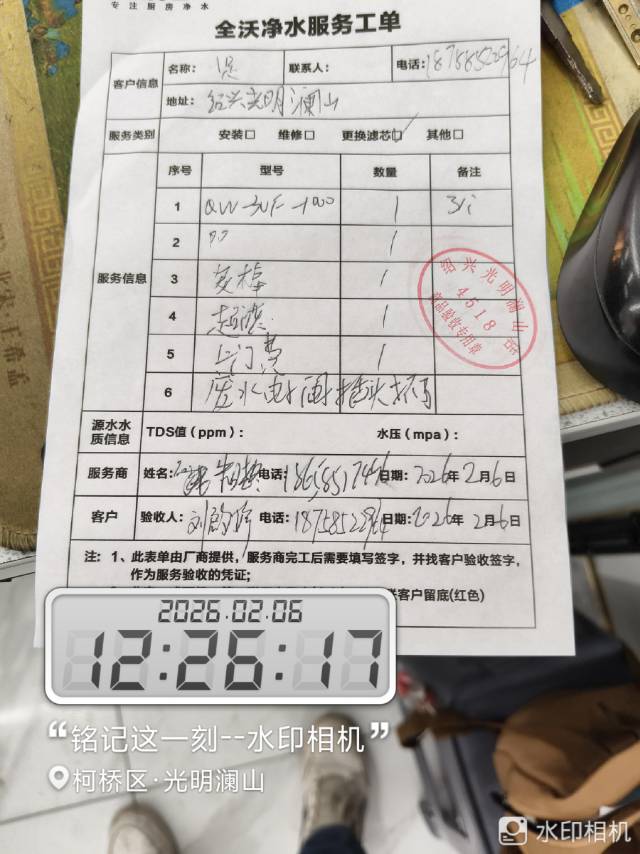 专注厨房净水
全沃净水服务工单
客户信息
名称：
联系人：
电话：18758522964
地址：绍兴光明澜山
服务类别 安装□ 维修□ 更换滤芯☑ 其他□
服务信息
序号 型号 数量 备注
1 QW-3UF-1000 1
2 1
3 炭棒 1
4 超滤 1
5 上门费 1
6 废水电闸插头坏了
绍兴光明澜山店
4518
食品验收专用章
源水水质信息
TDS值（ppm）： 水压（mpa）：
服务商 姓名： 电话： 日期：2026年2月6日
客户 验收人：刘 电话：18758522964 日期：2026年2月6日
注：1、此表单由厂商提供，服务商完工后需要填写签字，并找客户验收签字，
作为服务验收的凭证；
客户留底(红色)
2026.02.06
12:26:17
“铭记这一刻--水印相机”
柯桥区·光明澜山
水印相机